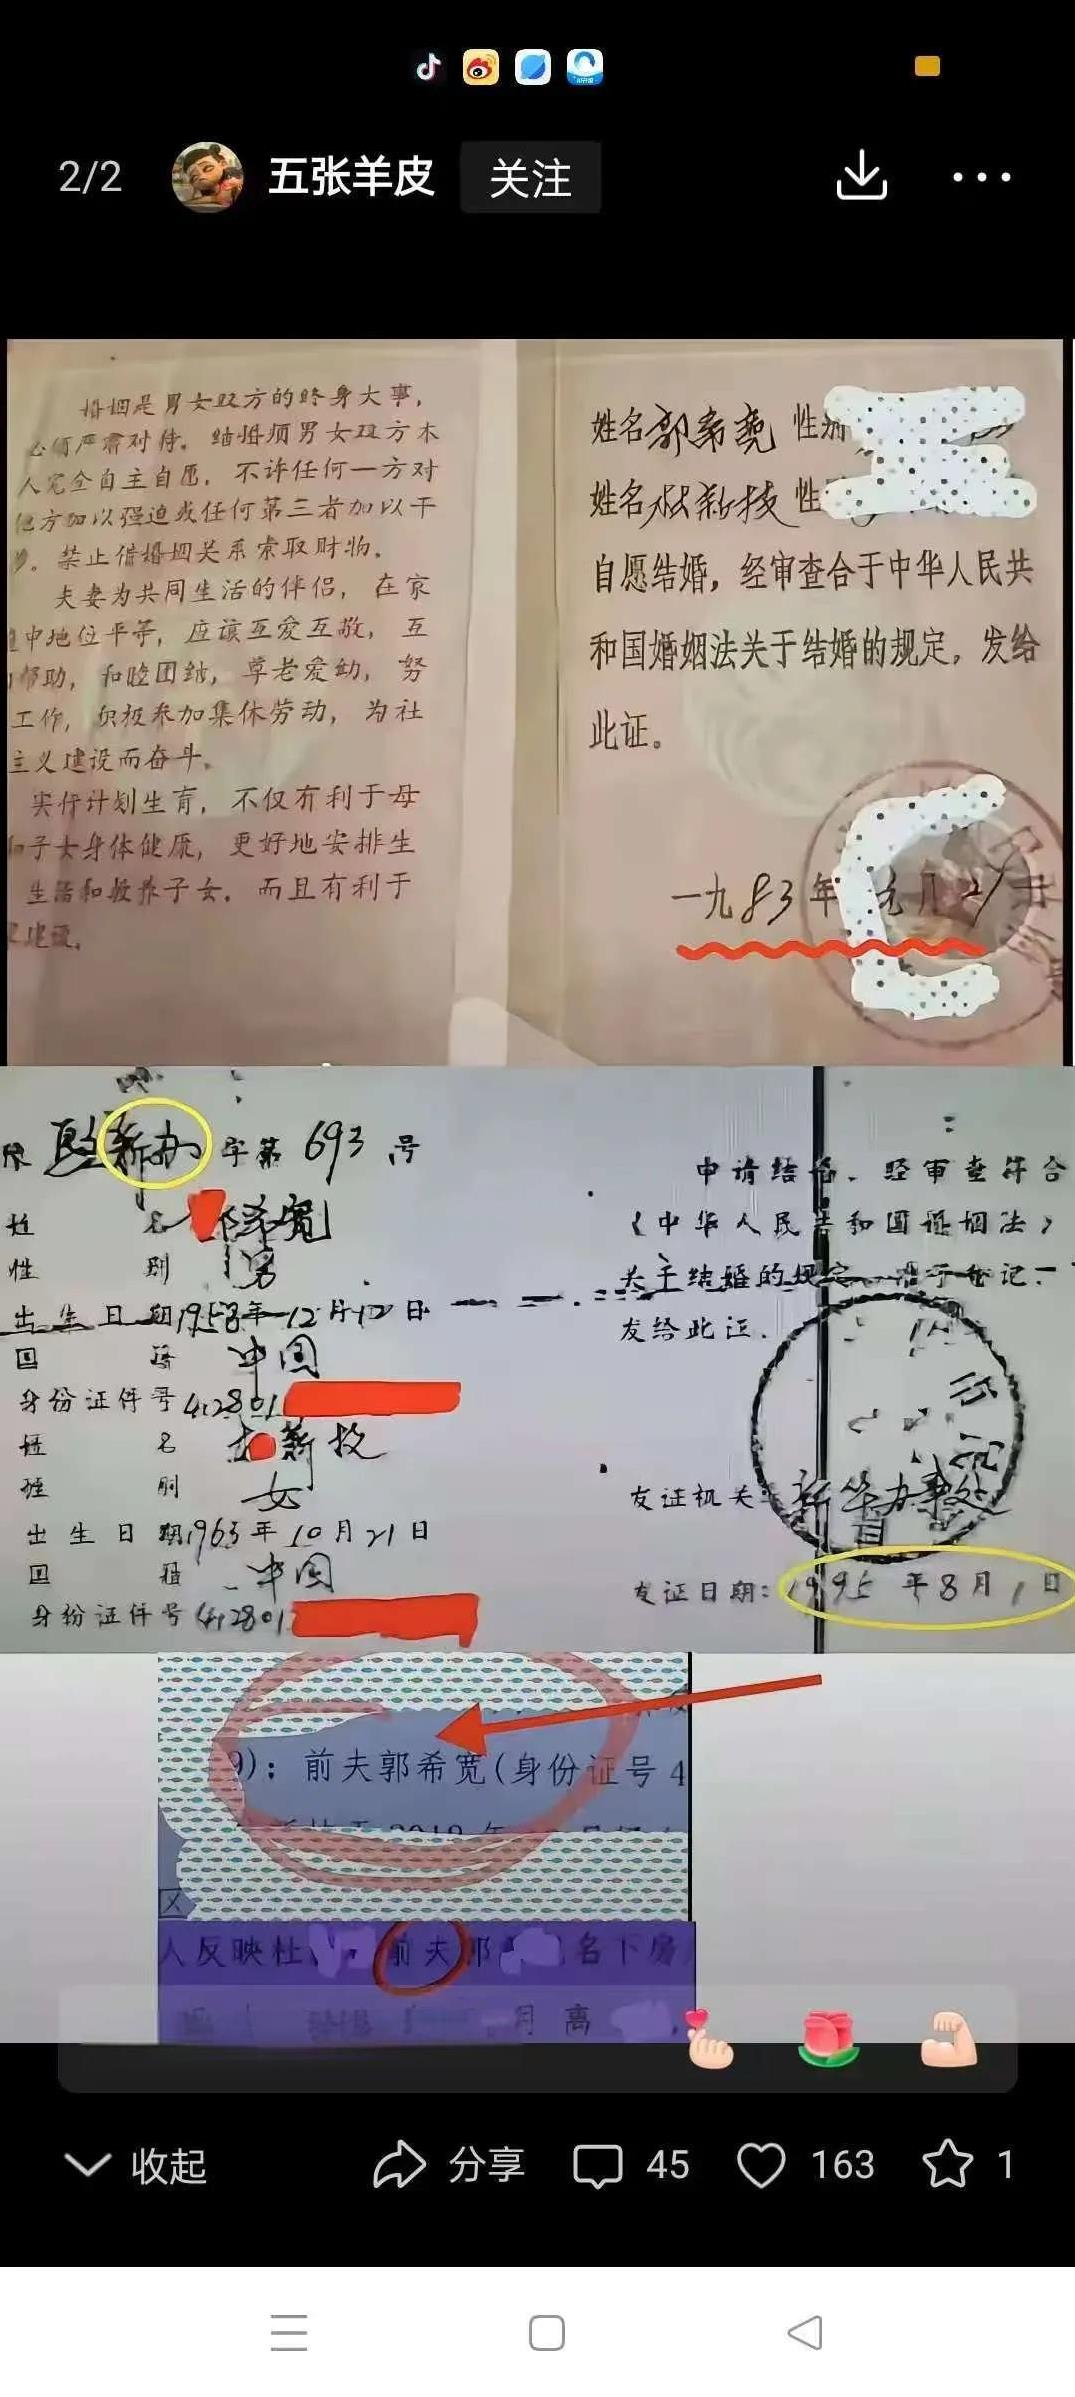 2/2 五张羊皮 关注
婚姻是男女双方的终身大事，
必须严肃对待。结婚须男女双方本
人完全自主自愿，不许任何一方对
他方加以强迫或任何第三者加以干
涉。禁止借婚姻关系索取财物。
夫妻为共同生活的伴侣，在家
中地位平等，应该互爱互敬，互
帮助，和睦团结，尊老爱幼，努
工作，积极参加集体劳动，为社
主义建设而奋斗。
实行计划生育，不仅有利于母
和子女身体健康，更好地安排生
生活和教养子女，而且有利于
建设。
姓名郭希尧 性别
姓名 新技 性
自愿结婚，经审查合于中华人民共
和国婚姻法关于结婚的规定，发给
此证。
一九83年元月21日
新办字第693号
姓名 希宽
性别 男
出生日期1958年12月12日
国籍 中国
身份证件号412801
姓名 新技
性别 女
出生日期1963年10月21日
国籍 中国
身份证件号412801
申请结婚，经审查符合
《中华人民共和国婚姻法》
关于结婚的规定，准予登记，
发给此证。
发证机关：新华办事处
发证日期：1995年8月1日
9)：前夫郭希宽(身份证号4
人反映杜 前夫郭 名下房
月离
收起 分享 45 163 1